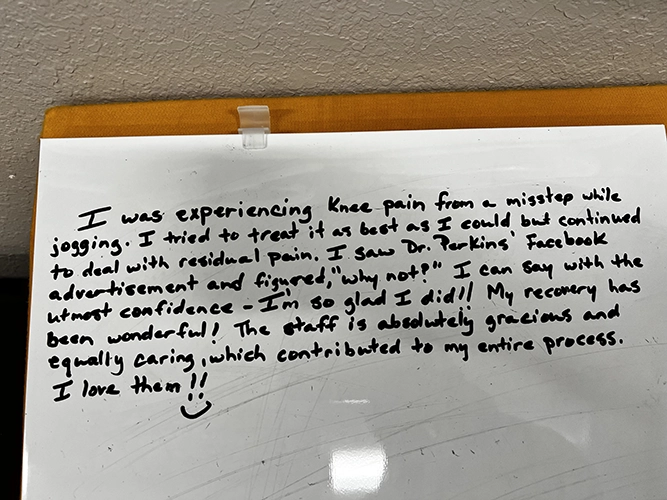 I was experiencing knee pain from a misstep while
jogging. I tried to treat it as best as I could but continued
to deal with residual pain. I saw Dr. Perkins' Facebook
advertisement and figured, "why not?" I can say with the
utmost confidence - I'm so glad I did!! My recovery has
been wonderful! The staff is absolutely gracious and
equally caring, which contributed to my entire process.
I love them!!